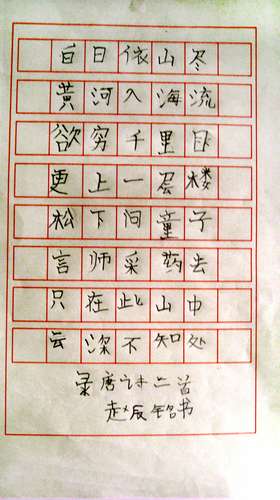 白日依山尽
黄河入海流
欲穷千里目
更上一层楼
松下问童子
言师采药去
只在此山中
云深不知处
录唐诗二首
赵辰铭书